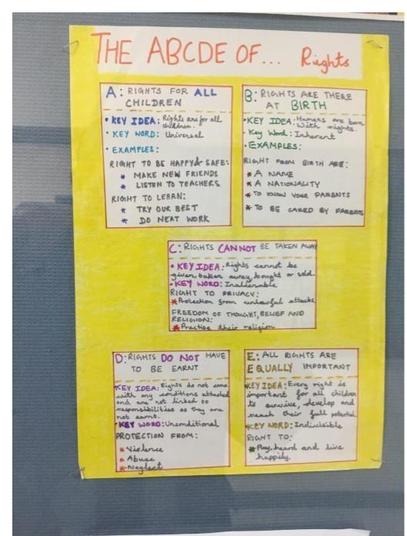 THE ABCDE OF... Rights
A: RIGHTS FOR ALL
CHILDREN
• KEY IDEA: Rights are for all
children.
• KEY WORD: Universal
• EXAMPLES:
RIGHT TO BE HAPPY & SAFE:
* MAKE NEW FRIENDS
* LISTEN TO TEACHERS
RIGHT TO LEARN:
* TRY OUR BEST
* DO NEAT WORK
B: RIGHTS ARE THERE
AT BIRTH
• KEY IDEA: Humans are born
with rights.
• Key Word: Inherent
• EXAMPLES:
RIGHT FROM BIRTH ARE:
* A NAME
* A NATIONALITY
* TO KNOW YOUR PARENTS
* TO BE CARED BY PARENTS
C: RIGHTS CANNOT BE TAKEN AWAY
• KEY IDEA: Rights cannot be
given, taken away, bought or sold.
• KEY WORD: Inalienable
RIGHT TO PRIVACY:
* Protection from unlawful attacks
FREEDOM OF THOUGHT, BELIEF AND
RELIGION:
* Practice their religion
D: RIGHTS DO NOT HAVE
TO BE EARNT
KEY IDEA: Rights do not come
with any conditions attached
and are not linked to
responsibilities as they are
not earnt.
KEY WORD: Unconditional
PROTECTION FROM:
* Violence
* Abuse
* Neglect
E: ALL RIGHTS ARE
EQUALLY IMPORTANT
KEY IDEA: Every right is
important for all children
to survive, develop and
reach their full potential.
KEY WORD: Indivisible
RIGHT TO:
* Play, heard and live
happily.